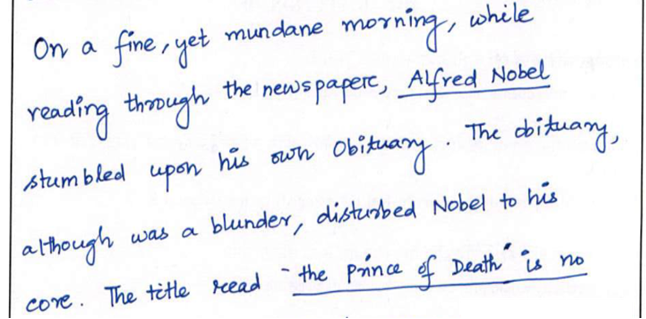 On a fine, yet mundane morning, while
reading through the newspaper, Alfred Nobel
stumbled upon his own Obituary. The obituary,
although was a blunder, disturbed Nobel to his
core. The title read "the prince of Death" is no